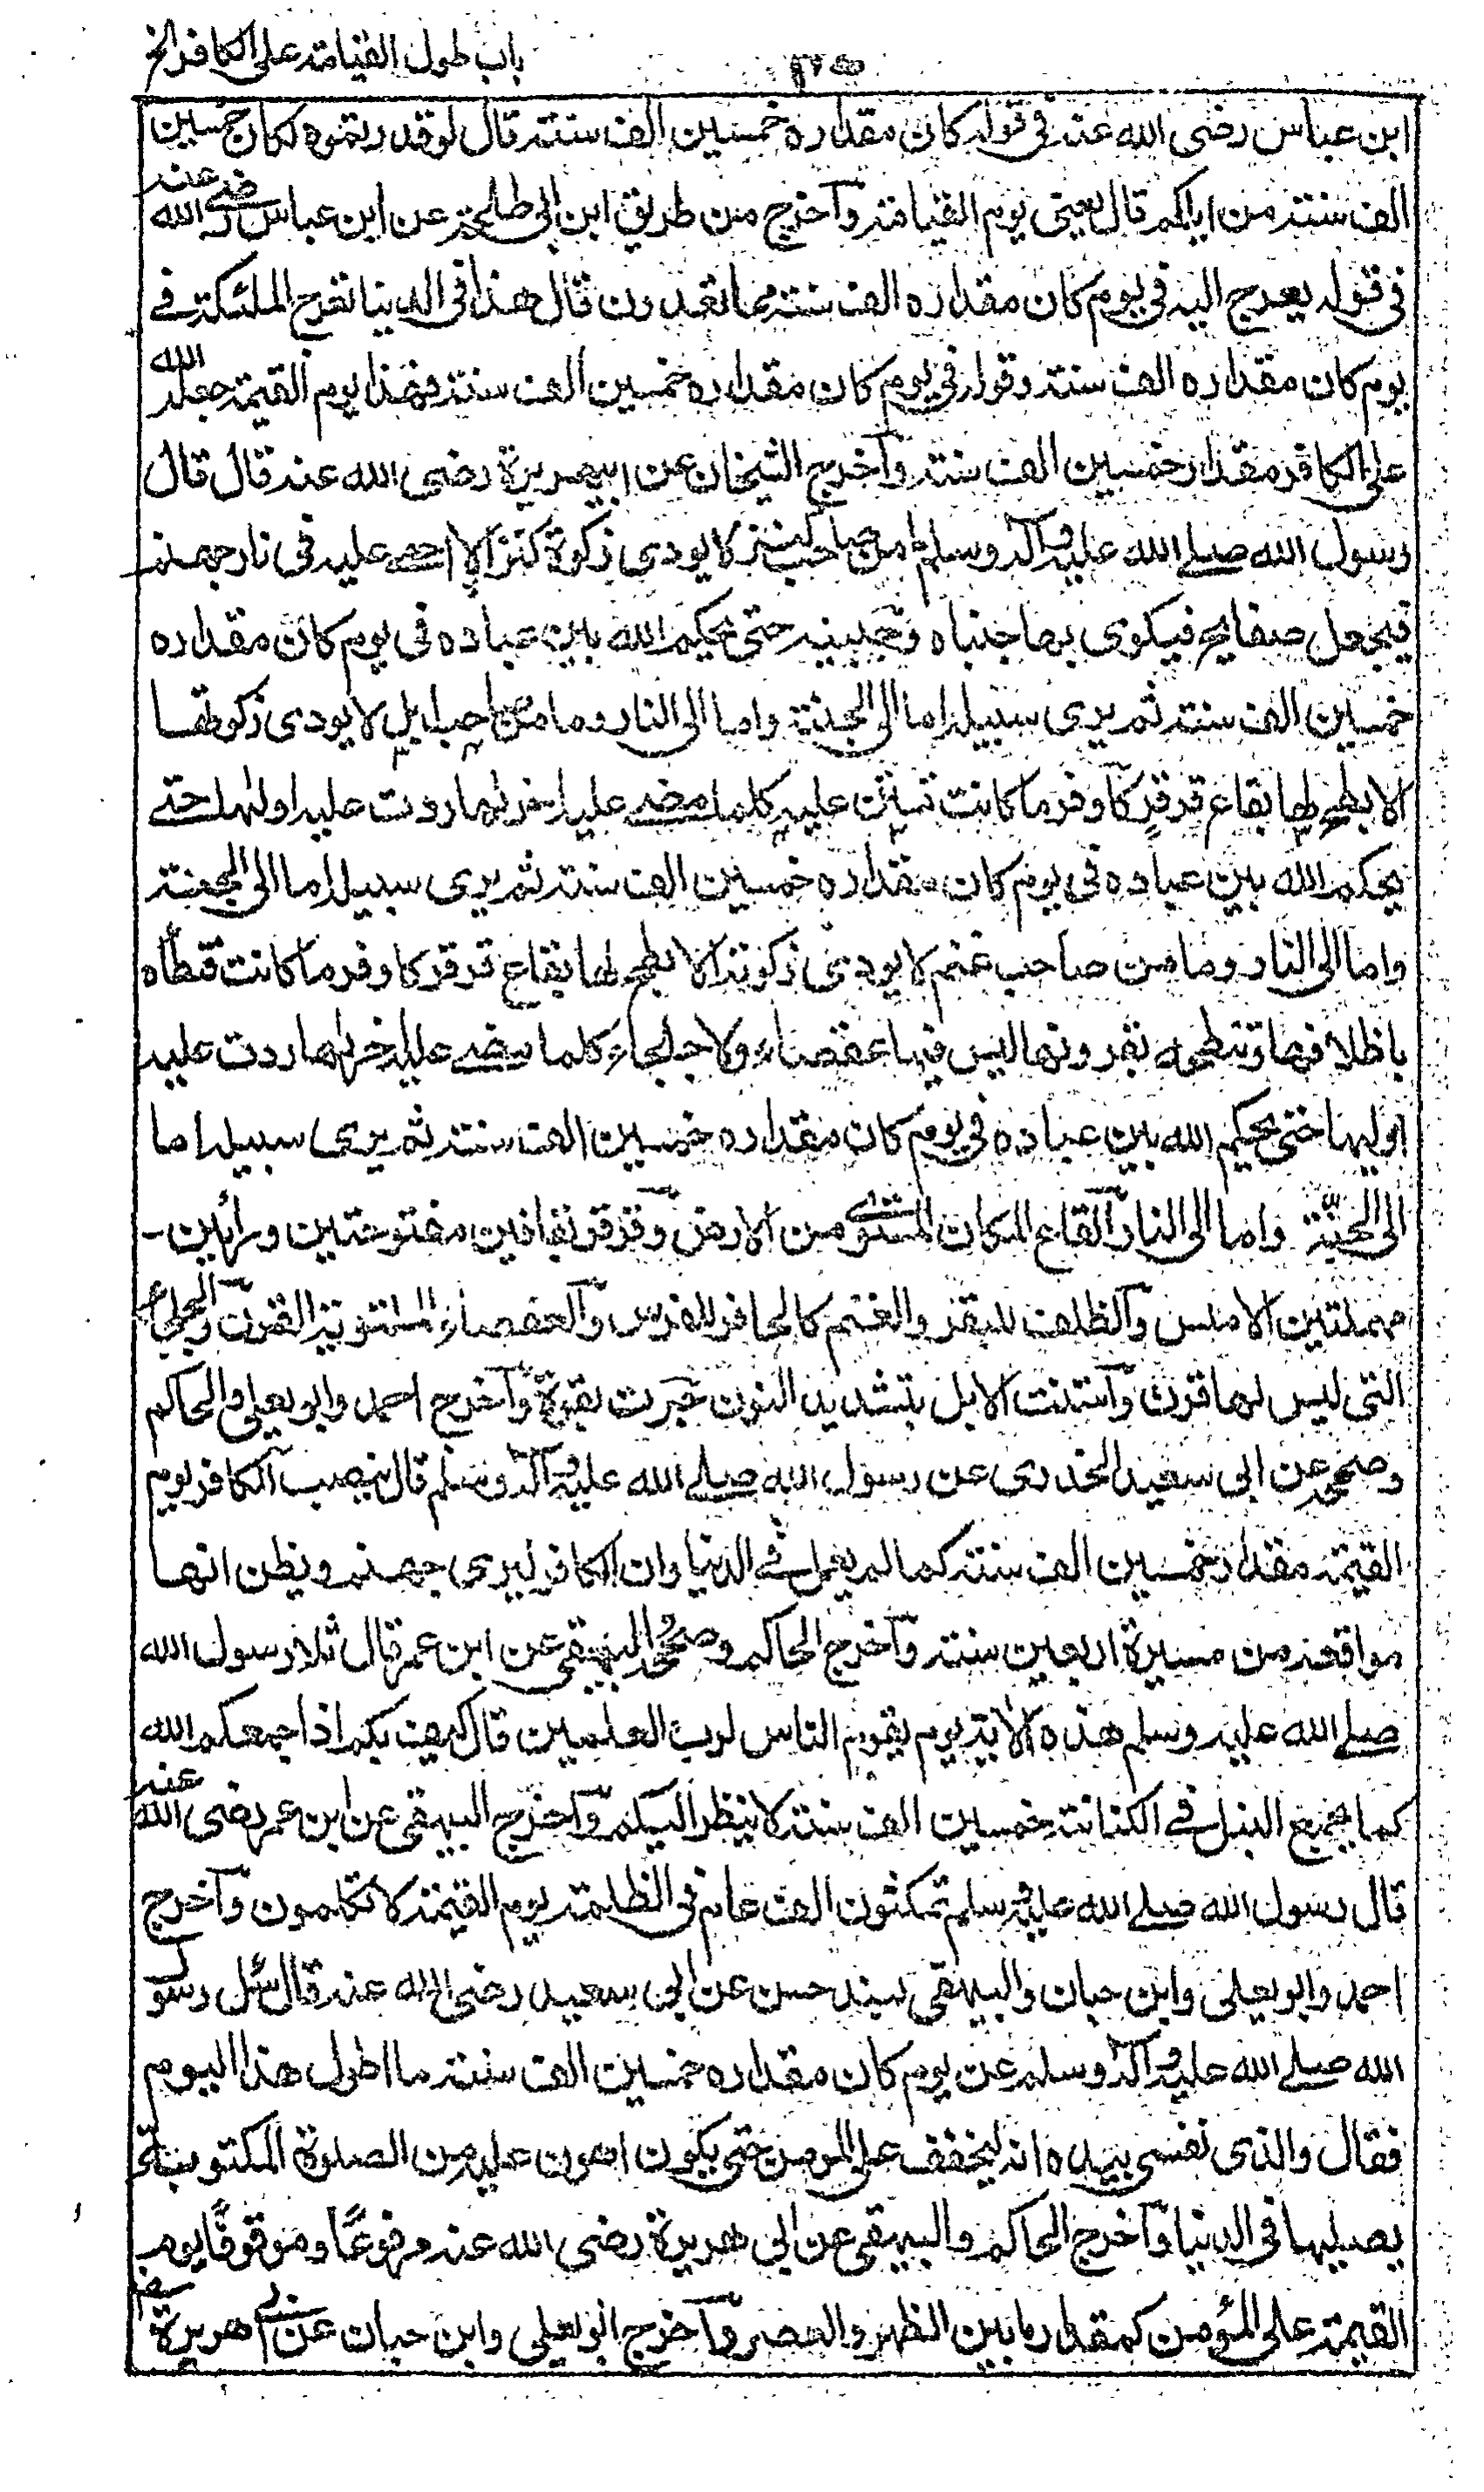 باب طول القيامة على الكافر الخ
ابن عباس رضى الله عنه فى قوله كان مقداره خمسين الف سنة قال لو قدرتموه لكان خمسين
الف سنة من ايامكم قال يعنى يوم القيامة وآخرج من طريق ابن ابى طلحة عن ابن عباس رضى الله عنه
فى قوله يعرج اليه فى يوم كان مقداره الف سنة مما تعدون قال هذا فى الدنيا تعرج الملئكة فے
يوم كان مقداره الف سنة وقوله فى يوم كان مقداره خمسين الف سنة فهذا يوم القيمة جعله الله
على الكافر مقدار خمسين الف سنة وآخرج الشيخان عن ابيهريرة رضى الله عنه قال قال
رسول الله صلے الله عليه وآله وسلم ما من صاحب كنز لا يودى زكوة كنزه الا احمے عليه فى نار جهنم
فيجعل صفايح فيكوى بها جنباه وجبينه حتى يحكم الله بين عباده فى يوم كان مقداره
خمسين الف سنة ثم يرى سبيله اما الى الجنة واما الى النار وما من صاحب ابل لا يودى زكوتها
الا بطح لها بقاع قرقر كاوفر ما كانت تستن عليه كلما مضے عليه اخرلها ردت عليه اولها حتے
يحكم الله بين عباده فى يوم كان مقداره خمسين الف سنة ثم يرى سبيله اما الى الجنة
واما الى النار وما من صاحب غنم لا يودى زكوته الا بطح لها بقاع قرقر كاوفر ما كانت فتطأه
باظلافها وتنطحه بقرونها ليس فيها عقصاء ولا جلحاء كلما مضے عليه اخرلها ردت عليه
اوليها حتى يحكم الله بين عباده فى يوم كان مقداره خمسين الف سنة ثم يرى سبيله اما
الى الجنّة واما الى النار آلقاع المكان المستوى من الارض وقرقر بقافين مفتوحتين ورائين ـ
مهملتين الاملس وآلظلف للبقر والغنم كالحافر للفرس وآلعقصاء الملتوية القرن وآلجلحاء
التى ليس لها قرن وآستنت الابل بتشديد النون عبرت بقوة وآخرج احمد وابو يعلى والحاكم
وصححه عن ابى سعيد الخدرى عن رسول الله صلے الله عليه وآله وسلم قال ينصب الكافر يوم
القيمة مقدار خمسين الف سنة كما لم يعمل فے الدنيا وان الكافر ليرى جهنم ويظن انها
مواقعة من مسيرة اربعين سنة وآخرج الحاكم وصححه والبيهقى عن ابن عمر قال تلا رسول الله
صلے الله عليه وسلم هذه الآية يوم يقوم الناس لرب العلمين قال كيف بكم اذا جمعكم الله
كما يجمع النبل فے الكنانة خمسين الف سنة لا ينظر اليكم وآخرج البيهقى عن ابن عمر رضى الله عنه
قال رسول الله صلے الله عليه وسلم تمكثون الف عام فى الظلمة يوم القيمة لا تكلمون وآخرج
احمد وابو يعلى وابن حبان والبيهقى بسند حسن عن ابى سعيد رضى الله عنه قال سئل رسول
الله صلے الله عليه وآله وسلم عن يوم كان مقداره خمسين الف سنة ما اطول هذا اليوم
فقال والذى نفسى بيده انه ليخفف على المومن حتى يكون اهون عليه من الصلوة المكتوبة
يصليها فى الدنيا وآخرج الحاكم والبيهقى عن ابى هريرة رضى الله عنه مرفوعًا وموقوفًا يوم
القيمة على المؤمن كمقدار ما بين الظهر والعصر وآخرج ابو يعلى وابن حبان عن ابى هريرة